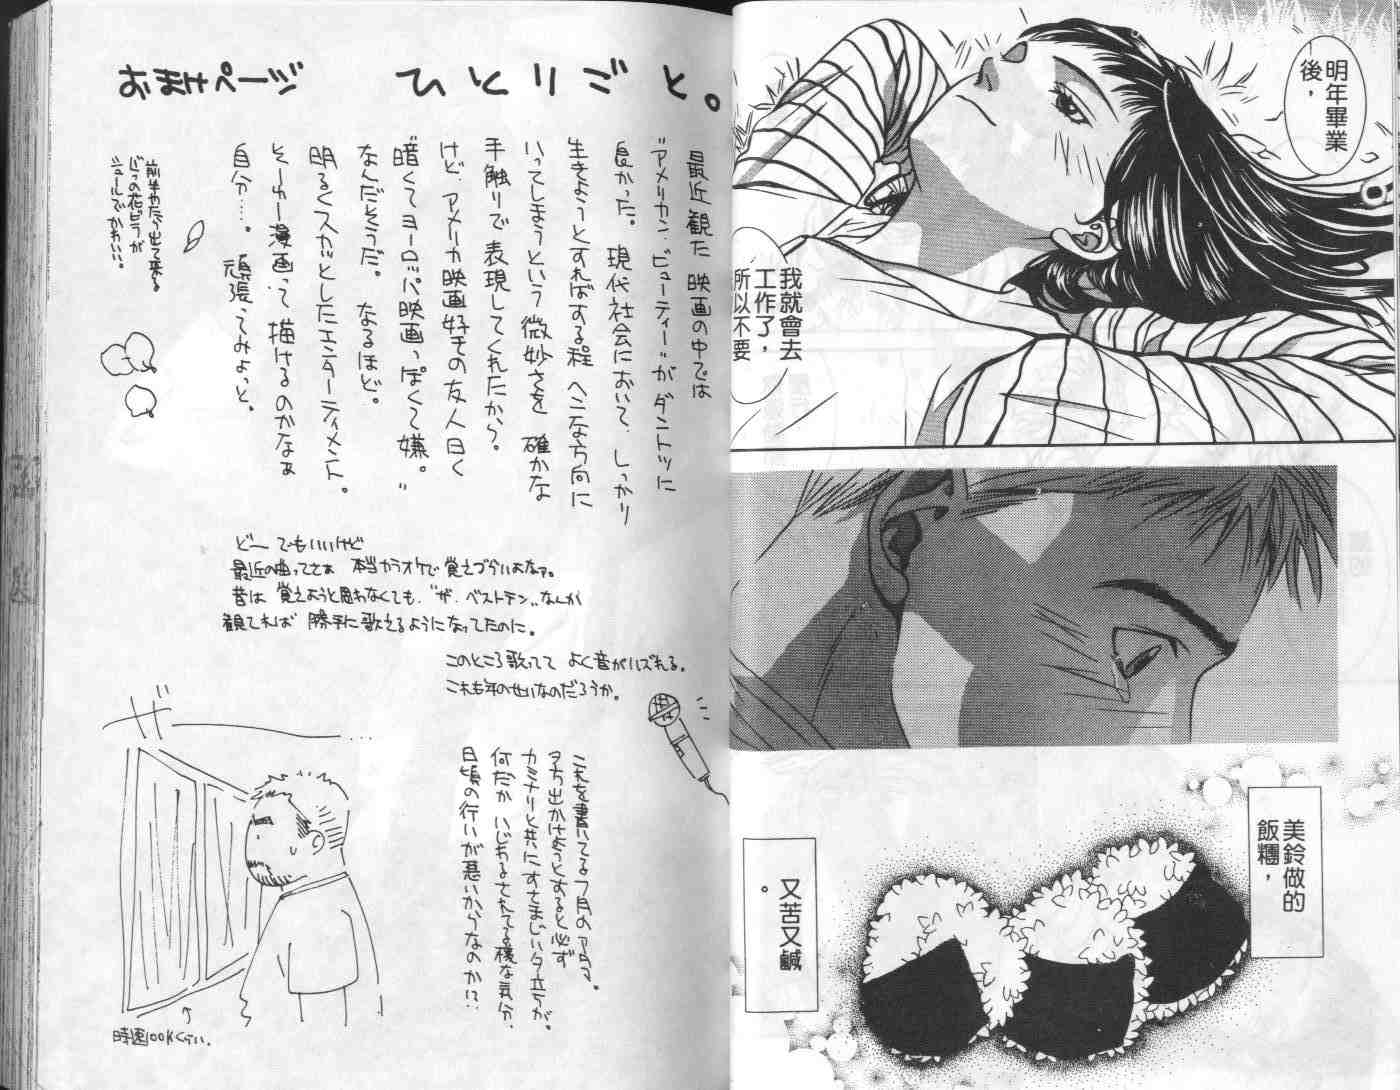 明年畢業
後，
我就會去
工作了，
所以不要
美鈴做的
飯糰，
又苦又鹹
。
おまけページ ひとりごと。
最近観た 映画の中では
"アメリカン・ビューティー"が ダントツに
良かった。 現代社会において、しっかり
生きようとすればする程 ヘンな方向に
いってしまうという 微妙さを 確かな
手触りで 表現してくれたから。
けど、アメリカ映画好きの友人曰く
"暗くてヨーロッパ映画っぽくて嫌。"
なんだそうだ。 なるほど。
明るくスカッとしたエンターティメント。
そーゆー漫画って 描けるのかなぁ
自分……。 頑張ってみよっと。
前半やたら出て来る
じつの花ビラが
シュールでかわいい。
どー でもいいけど
最近の曲ってさぁ 本当カラオケで覚えづらいよなァ。
昔は 覚えようと思わなくても、"ザ・ベストテン"なんか
観てれば 勝手に歌えるようになってたのに。
このところ歌ってて よく音がハズれる。
これも年のせいなのだろうか。
これを書いてる7月のアタマ。
夕方出かけようとすると必ず
カミナリと共にすさまじい夕立ちが。
何だか いじわるされてる様な気分。
日頃の行いが悪いからなのか!?
時速100Kくらい。